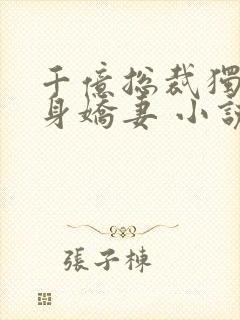 千億総裁獨
身嬌妻 小説
張子棟